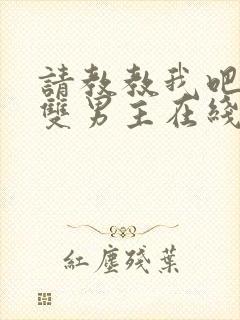 請教教我吧
雙男主在綫
紅塵殘葉